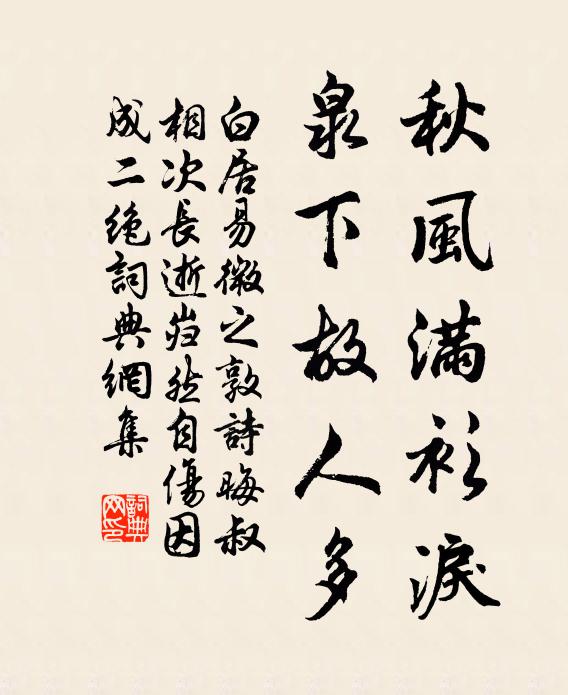 秋風滿衫淚
泉下故人多
白居易微之敦詩晦叔
相次長逝岿然自傷因
成二絶詞典網集
詞典
网印